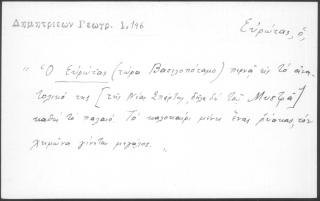 Δημητριεων Γεωγρ. 1,196
Εὐρώτας, ὁ,
"Ὁ Εὐρώτας (τώρα Βασιλοπόταμο) περνᾷ εἰς τὸ ἀνα-
τολικό της [τῆς Νέας Σπάρτης, δηλαδὴ τοῦ Μυστρᾶ]
καθὼ τὸ παλαιό. Τὸ καλοκαίρι μένει ἕνας ῥύακας, τὸν
χειμῶνα γίνεται μεγάλος.